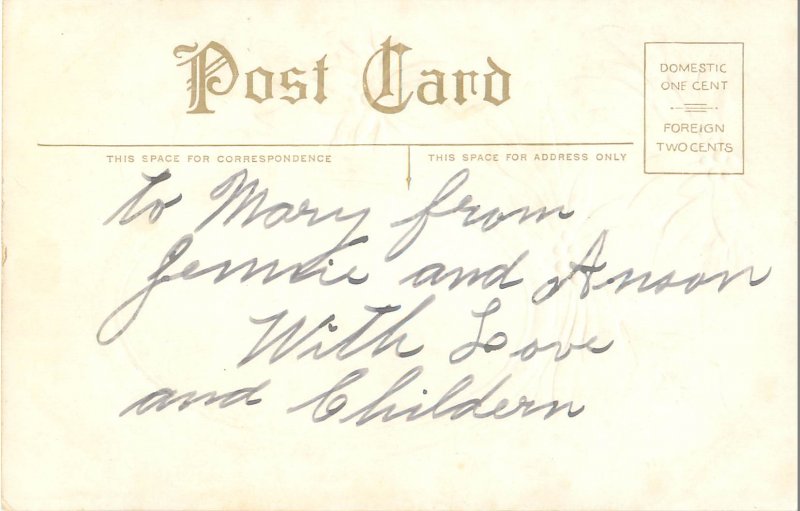 Post Card
DOMESTIC
ONE CENT
FOREIGN
TWO CENTS
THIS SPACE FOR CORRESPONDENCE
THIS SPACE FOR ADDRESS ONLY
to Mary from
Jennie and Anson
With Love
and Childern